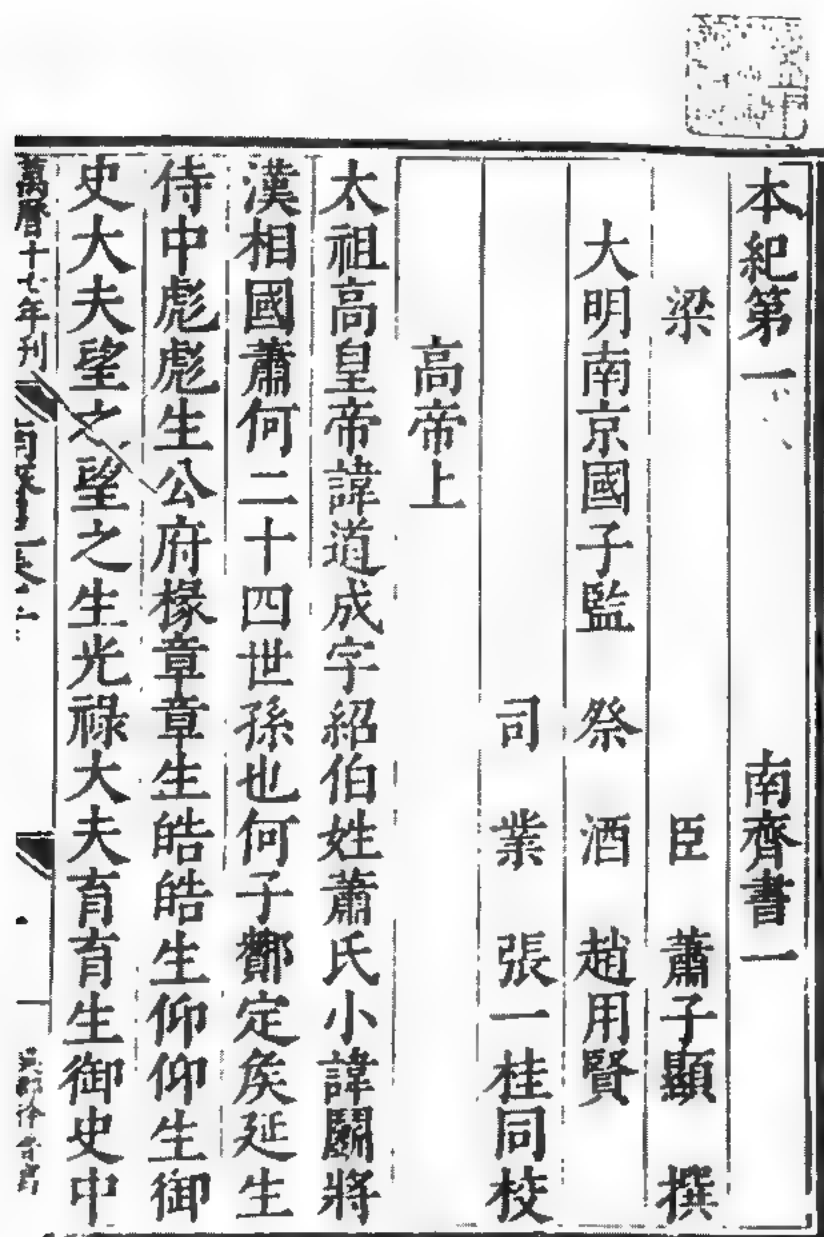 本紀第一 南齊書一
梁 臣 蕭子顯 撰
大明南京國子監 祭 酒 趙用賢
司 業 張一桂同校
高帝上
太祖高皇帝諱道成字紹伯姓蕭氏小諱鬭將
漢相國蕭何二十四世孫也何子酇定矦延生
侍中彪彪生公府椽章章生皓皓生仰仰生御
史大夫望之望之生光祿大夫育育生御史中
萬曆十七年刋